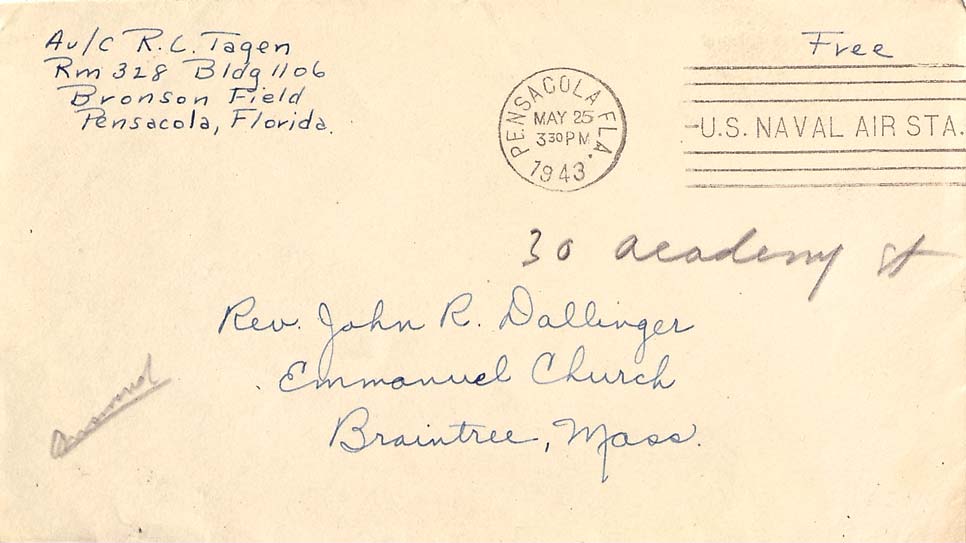 Av/C R. C. Tagen
Rm 328 Bldg 1106
Bronson Field
Pensacola, Florida.
PENSACOLA FLA.
MAY 25
3 30 PM
1943
Free
U.S. NAVAL AIR STA.
30 academy st
Rev. John R. Dallinger
Emmanuel Church
Braintree, Mass.